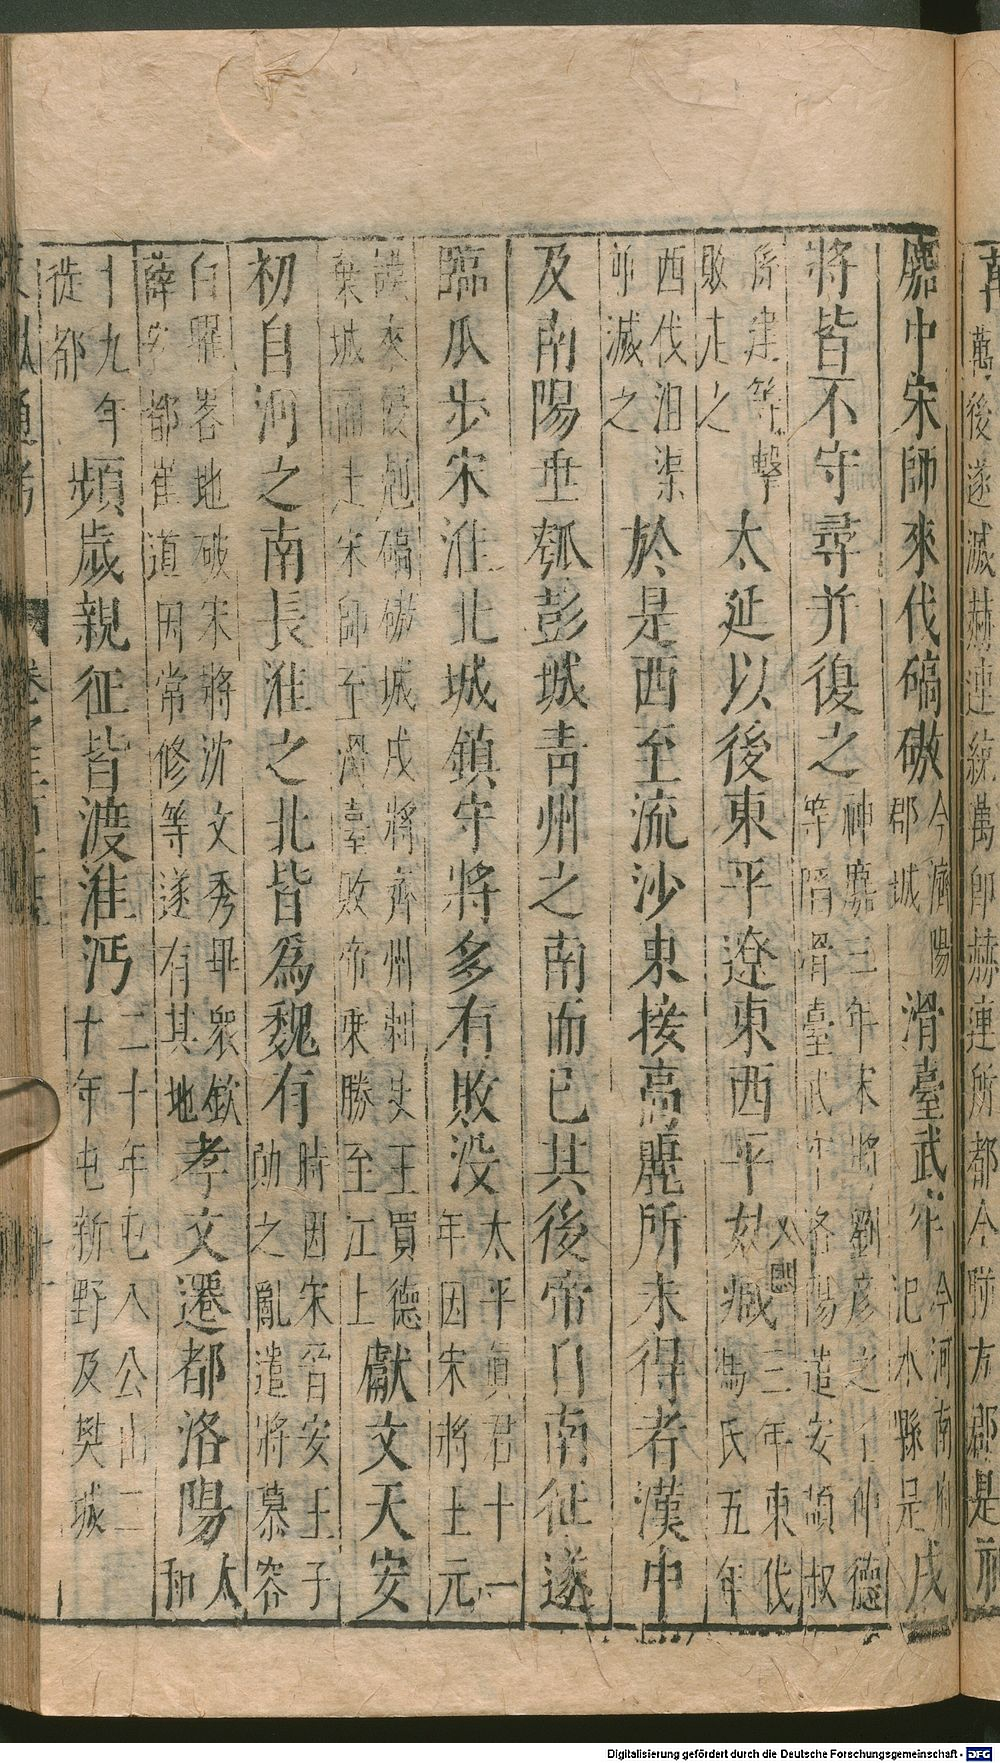 麚中宋師來伐碻磝今濟陽郡城滑臺武牢今河南府汜水縣是戍
將皆不守尋并復之神麚三年宋將劉彥之丁仲德等陷滑臺武牢洛陽遣安頡叔
孫建等擊敗走之太延以後東平遼東西平姑臧三年東伐馮氏五年
西伐沮渠並滅之於是西至流沙東接高麗所未得者漢中
及南陽垂瓠彭城青州之南而已其後帝自南征遂
臨瓜步宋淮北城鎮守將多有敗没太平真君十一年因宋將王元
謨來侵剋碻磝城戍將齊州刺史王買德棄城而走宋師至滑臺敗帝乘勝至江上獻文天安
初自河之南長淮之北皆爲魏有時因宋晉安王子勛之亂遣將慕容
白曜畧地破宋將沈文秀畢衆敬薛安都崔道固常修等遂有其地孝文遷都洛陽太和
十九年徙都頻歲親征皆渡淮沔二十年屯八公山二十年屯新野及樊城
Digitalisierung gefördert durch die Deutsche Forschungsgemeinschaft - DFG